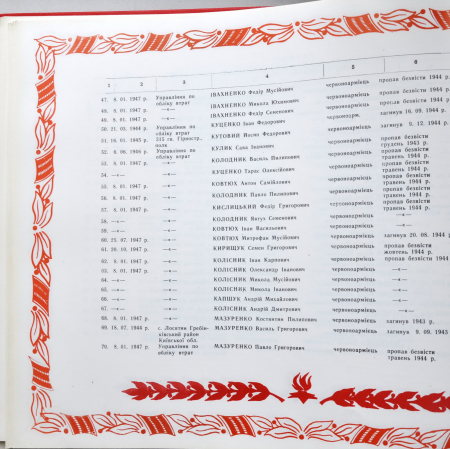 1 2 3 4 5 6
47. 9. 01. 1947 р. Управління по обліку втрат ІВАХНЕНКО Федір Мусійович червоноармієць пропав безвісти 1944 р.
48. 9. 01. 1947 р. —«— ІВАХНЕНКО Микола Юхимович червоноармієць пропав безвісти 1944 р.
49. 9. 01. 1947 р. —«— ІВАХНЕНКО Федір Семенович червоноармієць пропав безвісти 1944 р.
50. 21. 03. 1944 р. Управління по обліку втрат КУЦЕНКО Іван Федорович червоноарм. загинув 16. 09. 1944 р.
51. 16. 01. 1943 р. 335 гв. Гірностр. полк КУТОВИЙ Йосип Федорович червоноармієць загинув 9. 12. 1944 р.
52. Управління по обліку втрат КУЛИК Сава Іванович червоноармієць пропав безвісти грудень 1943 р.
53. 9. 01. 1947 р. —«— КОЛОДНИК Василь Пилипович червоноармієць пропав безвісти травень 1944 р.
54. —«— —«— КУЦЕНКО Тарас Олексійович червоноармієць пропав безвісти травень 1944 р.
55. 9. 01. 1947 р. —«— КОВТЮХ Антон Самійлович червоноармієць пропав безвісти травень 1944 р.
56. 6. 01. 1947 р. —«— КОЛОДНИК Павло Пилипович червоноармієць пропав безвісти травень 1944 р.
57. 4. 01. 1947 р. —«— КИСЛИЦЬКИЙ Федір Григорович червоноармієць пропав безвісти травень 1944 р.
58. —«— —«— КОЛОДНИК Семенович червоноармієць —«—
59. —«— —«— КОВТЮХ Іван Васильович червоноармієць —«—
60. 25. 07. 1947 р. —«— КОВТЮХ Митрофан Мусійович червоноармієць загинув 20. 08. 1944 р.
61. 20. 10. 1947 р. —«— КИРИЩУК Семен Григорович червоноармієць пропав безвісти жовтень 1944 р.
62. 9. 01. 1947 р. —«— КОЛІСНИК Іван Карпович червоноармієць пропав безвісти 1944 р.
63. 9. 01. 1947 р. —«— КОЛІСНИК Олександр Іванович червоноармієць —«—
64. —«— —«— КОЛІСНИК Микола Мусійович червоноармієць —«—
65. —«— —«— КОЛІСНИК Микола Іванович червоноармієць —«—
66. —«— —«— КАПШУК Андрій Михайлович червоноармієць —«—
67. —«— —«— КОЛІСНИК Андрій Дмитрович червоноармієць —«—
68. 9. 01. 1947 р. —«— МАЗУРЕНКО Костянтин Пилипович червоноармієць загинув 1943 р.
69. 18. 07. 1944 р. с. Лосятин Гребінківський район Київської обл. МАЗУРЕНКО Василь Григорович червоноармієць загинув 9. 09. 1943
70. 9. 01. 1947 р. Управління по обліку втрат МАЗУРЕНКО Павло Григорович червоноармієць пропав безвісти травень 1944 р.